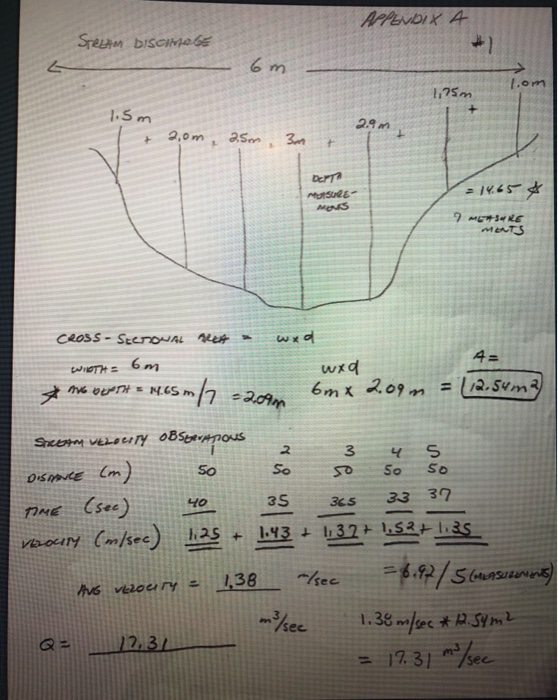 APPENDIX A
STREAM DISCHARGE #1
6 m
1.5m + 2.0m + 2.5m + 3m + 2.9m + 1.75m + 1.0m
DEPTH
MEASURE-
MENTS
= 14.65 ☆
7 MEASURE
MENTS
CROSS-SECTIONAL AREA = wxd
WIDTH = 6m
☆ AVG DEPTH = 14.65m/7 = 2.09m
wxd
6m x 2.09m =
A =
12.54m²
STREAM VELOCITY OBSERVATIONS
1 2 3 4 5
DISTANCE (m) 50 50 50 50 50
TIME (sec) 40 35 36.5 33 37
VELOCITY (m/sec) 1.25 + 1.43 + 1.37 + 1.52 + 1.35
= 6.92/5 (MEASUREMENTS)
AVG VELOCITY = 1.38 m/sec
Q = 17.31 m³/sec
1.38 m/sec * 12.54m²
= 17.31 m³/sec